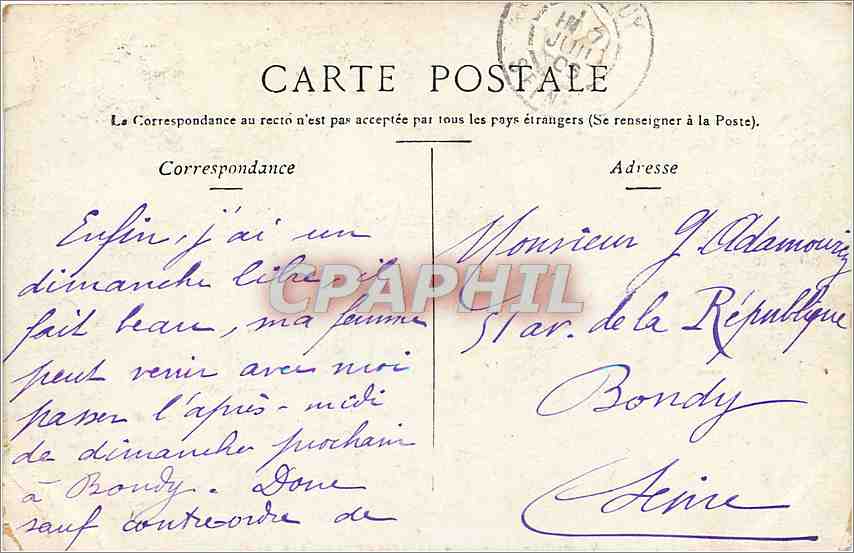 CARTE POSTALE
La Correspondance au recto n'est pas acceptée par tous les pays étrangers (Se renseigner à la Poste).
Correspondance
Enfin, j'ai un
dimanche libre, il
fait beau, ma femme
peut venir avec moi
passer l'après-midi
de dimanche prochain
à Bondy. Donc
sauf contre-ordre de
Adresse
Monsieur G. Adamouriz
51 av. de la République
Bondy
Seine
CPAPHIL